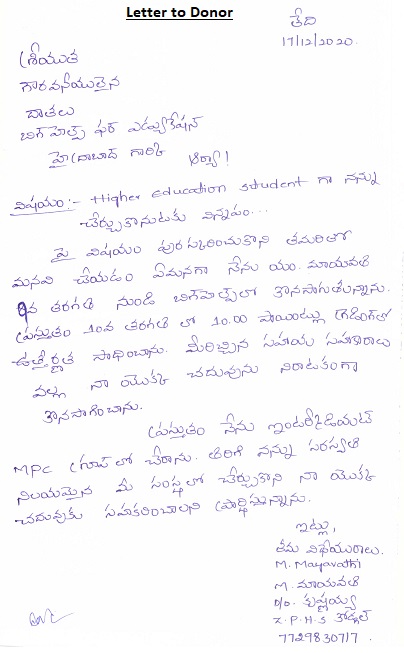 Letter to Donor
తేది
17/12/2020.
శ్రీయుత
గౌరవనీయులైన
దాతలు
బిగ్ హెల్ప్ ఫర్ ఎడ్యుకేషన్
హైద్రాబాద్ గారికి ఆర్యా!
విషయం:- Higher education student గా నన్ను
చేర్చుకొనుటకు విన్నపం...
పై విషయం పురస్కరించుకొని తమరితో
మనవి చేయడం ఏమనగా నేను యం. మాయవతి
9వ తరగతి నుండి బిగ్ హెల్ప్ లో కొనసాగుతున్నాను.
ప్రస్తుతం 10వ తరగతి లో 10.00 పాయింట్లు గ్రేడింగ్ తో
ఉత్తీర్ణత సాధించాను. మీరిచ్చిన సహాయ సహకారాలు
వల్ల నా యొక్క చదువును నిరాటకంగా
కొనసాగించాను.
ప్రస్తుతం నేను ఇంటర్మీడియట్
MPC గ్రూప్ లో చేరాను. తిరిగి నన్ను సరస్వతి
నిలయమైన మీ సంస్థలో చేర్చుకొని నా యొక్క
చదువుకు సహకరించాలని ప్రార్థిస్తున్నాను.
ఇట్లు,
తమ విధేయురాలు.
M. Mayavathi
M. మాయవతి
D/o. కృష్ణయ్య
Z.P.H.S కోడ్గల్
7729830717.